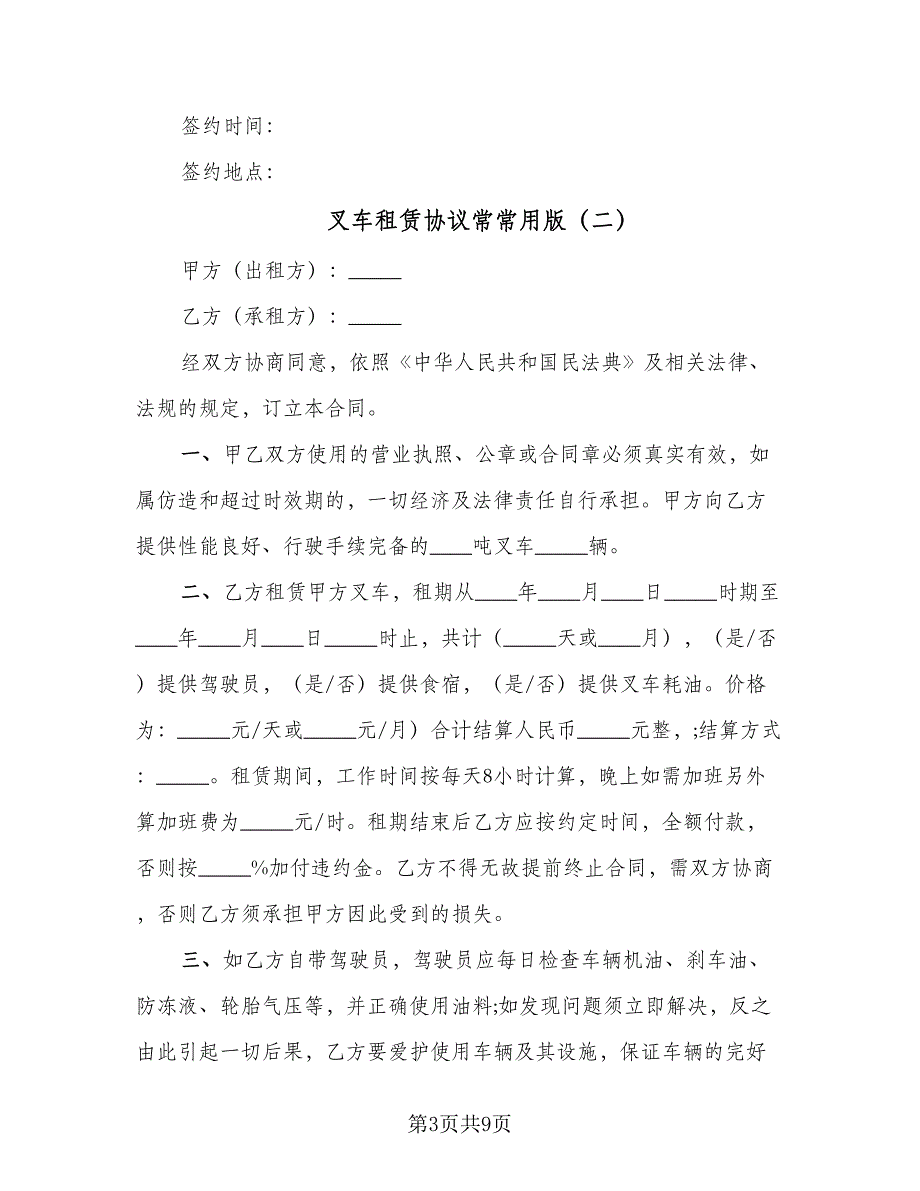 签约时间：
签约地点：
叉车租赁协议常常用版（二）
甲方（出租方）：_____
乙方（承租方）：_____
经双方协商同意，依照《中华人民共和国民法典》及相关法律、
法规的规定，订立本合同。
一、甲乙双方使用的营业执照、公章或合同章必须真实有效，如
属仿造和超过时效期的，一切经济及法律责任自行承担。甲方向乙方
提供性能良好、行驶手续完备的____吨叉车_____辆。
二、乙方租赁甲方叉车，租期从____年____月____日_____时期至
____年____月____日_____时止，共计（_____天或____月），（是/否
）提供驾驶员，（是/否）提供食宿，（是/否）提供叉车耗油。价格
为：_____元/天或_____元/月）合计结算人民币_____元整，;结算方式
：_____。租赁期间，工作时间按每天8小时计算，晚上如需加班另外
算加班费为_____元/时。租期结束后乙方应按约定时间，全额付款，
否则按_____%加付违约金。乙方不得无故提前终止合同，需双方协商
，否则乙方须承担甲方因此受到的损失。
三、如乙方自带驾驶员，驾驶员应每日检查车辆机油、刹车油、
防冻液、轮胎气压等，并正确使用油料;如发现问题须立即解决，反之
由此引起一切后果，乙方要爱护使用车辆及其设施，保证车辆的完好
第3页共9页